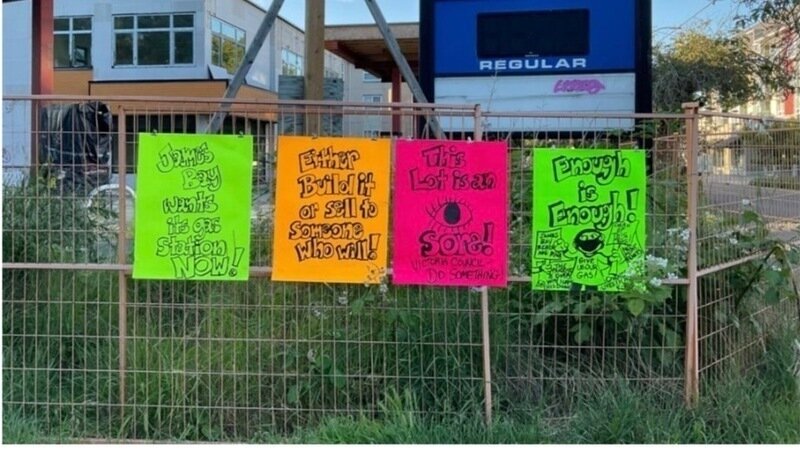 REGULAR
James
Bay
wants
its gas
station
NOW!
Either
Build it
or sell to
someone
who will!
This
Lot is an
Sore!
VICTORIA COUNCIL
DO SOMETHING
Enough
is
Enough!
GIVE
US OUR
GAS!